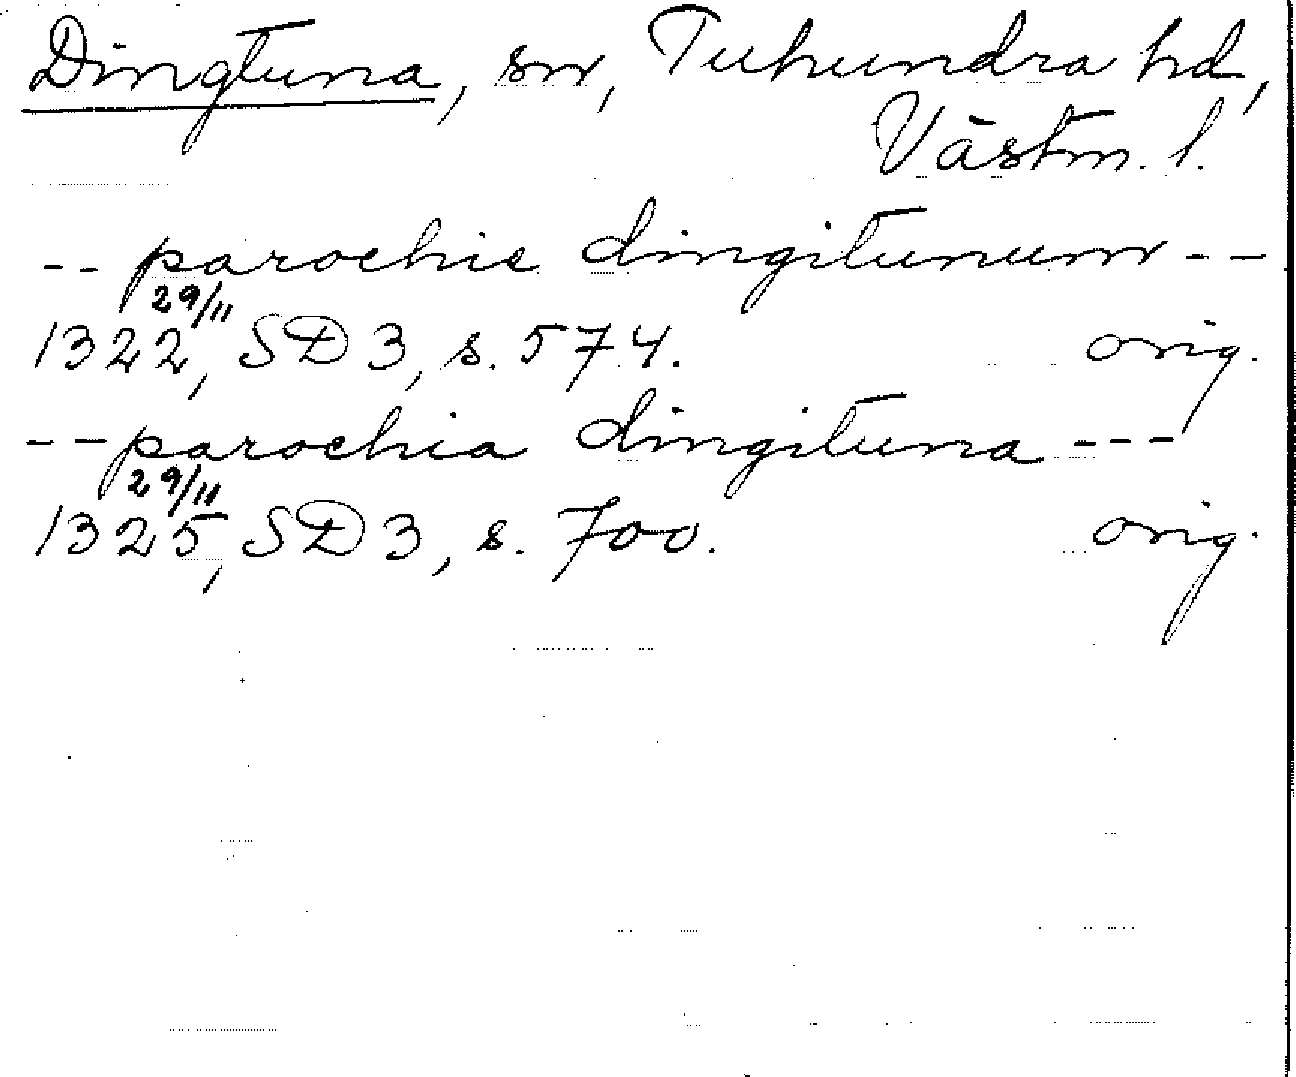 Dingtuna, sn, Tuhundra hd,
Västm. l.
-- parochie dingitunum --
29/11
1322, SD 3, s. 574. orig.
-- parochia dingituna ---
29/11
1325, SD 3, s. 700. orig.